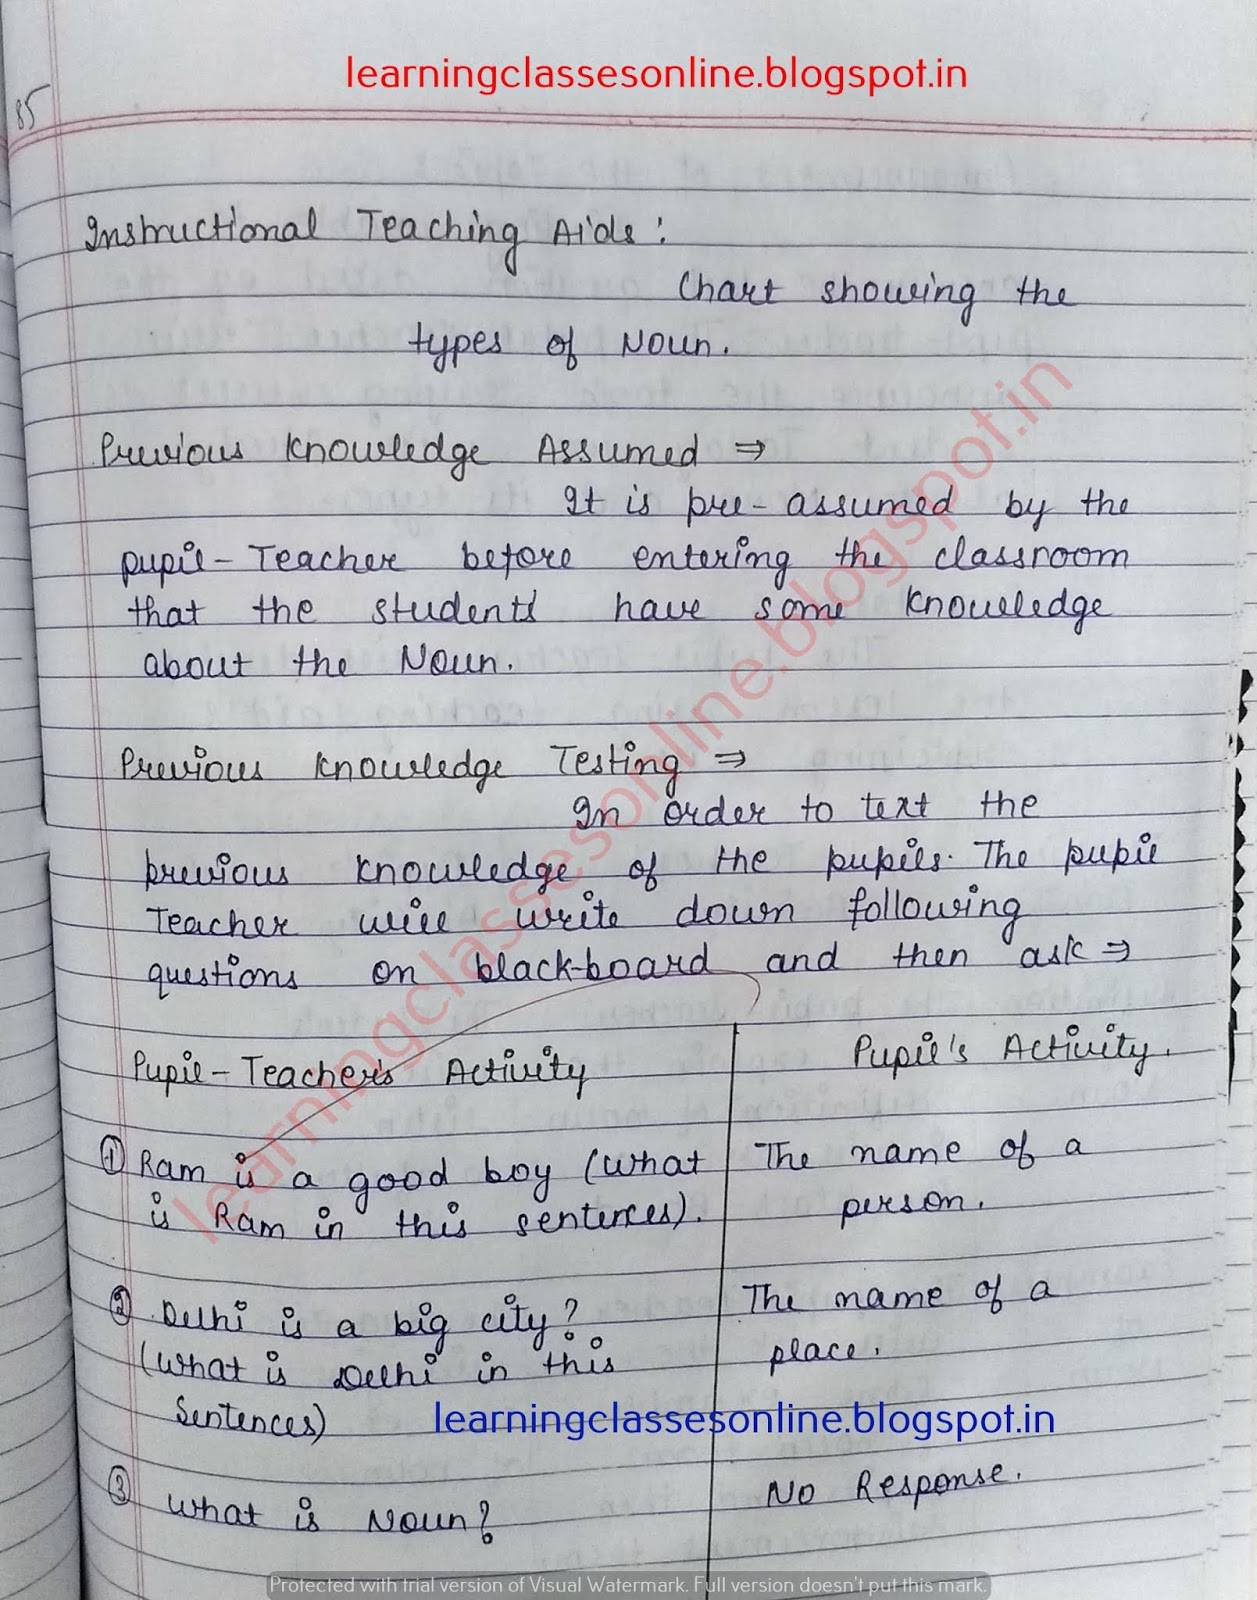 learningclassesonline.blogspot.in
85
Instructional Teaching Aids:
Chart showing the
types of Noun.
Previous Knowledge Assumed ⇒
It is pre-assumed by the
pupil-Teacher before entering the classroom
that the students have some knowledge
about the Noun.
Previous Knowledge Testing ⇒
In order to text the
previous knowledge of the pupils. The pupil
Teacher will write down following
questions on black-board and then ask ⇒
Pupil-Teacher's Activity
Pupil's Activity.
① Ram is a good boy (What
is Ram in this sentences).
The name of a
person.
② Delhi is a big city?
(What is Delhi in this
Sentences)
The name of a
place.
learningclassesonline.blogspot.in
③ What is Noun?
No Response.
learningclassesonline.blogspot.in
Protected with trial version of Visual Watermark. Full version doesn't put this mark.